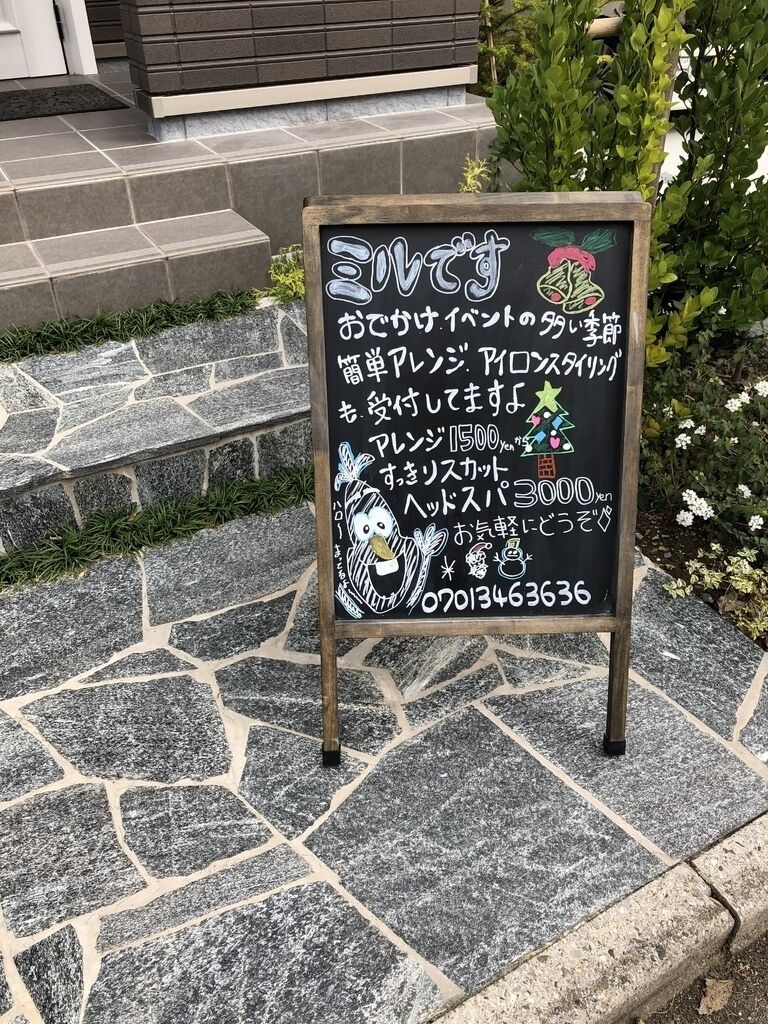 ミルです
おでかけ.イベントの多い季節
簡単アレンジ.アイロンスタイリング
も.受付してますよ
アレンジ1500yenから
すっきりスカット
ヘッドスパ3000yen
お気軽にどうぞ♢
ハロー まってるよ
07013463636